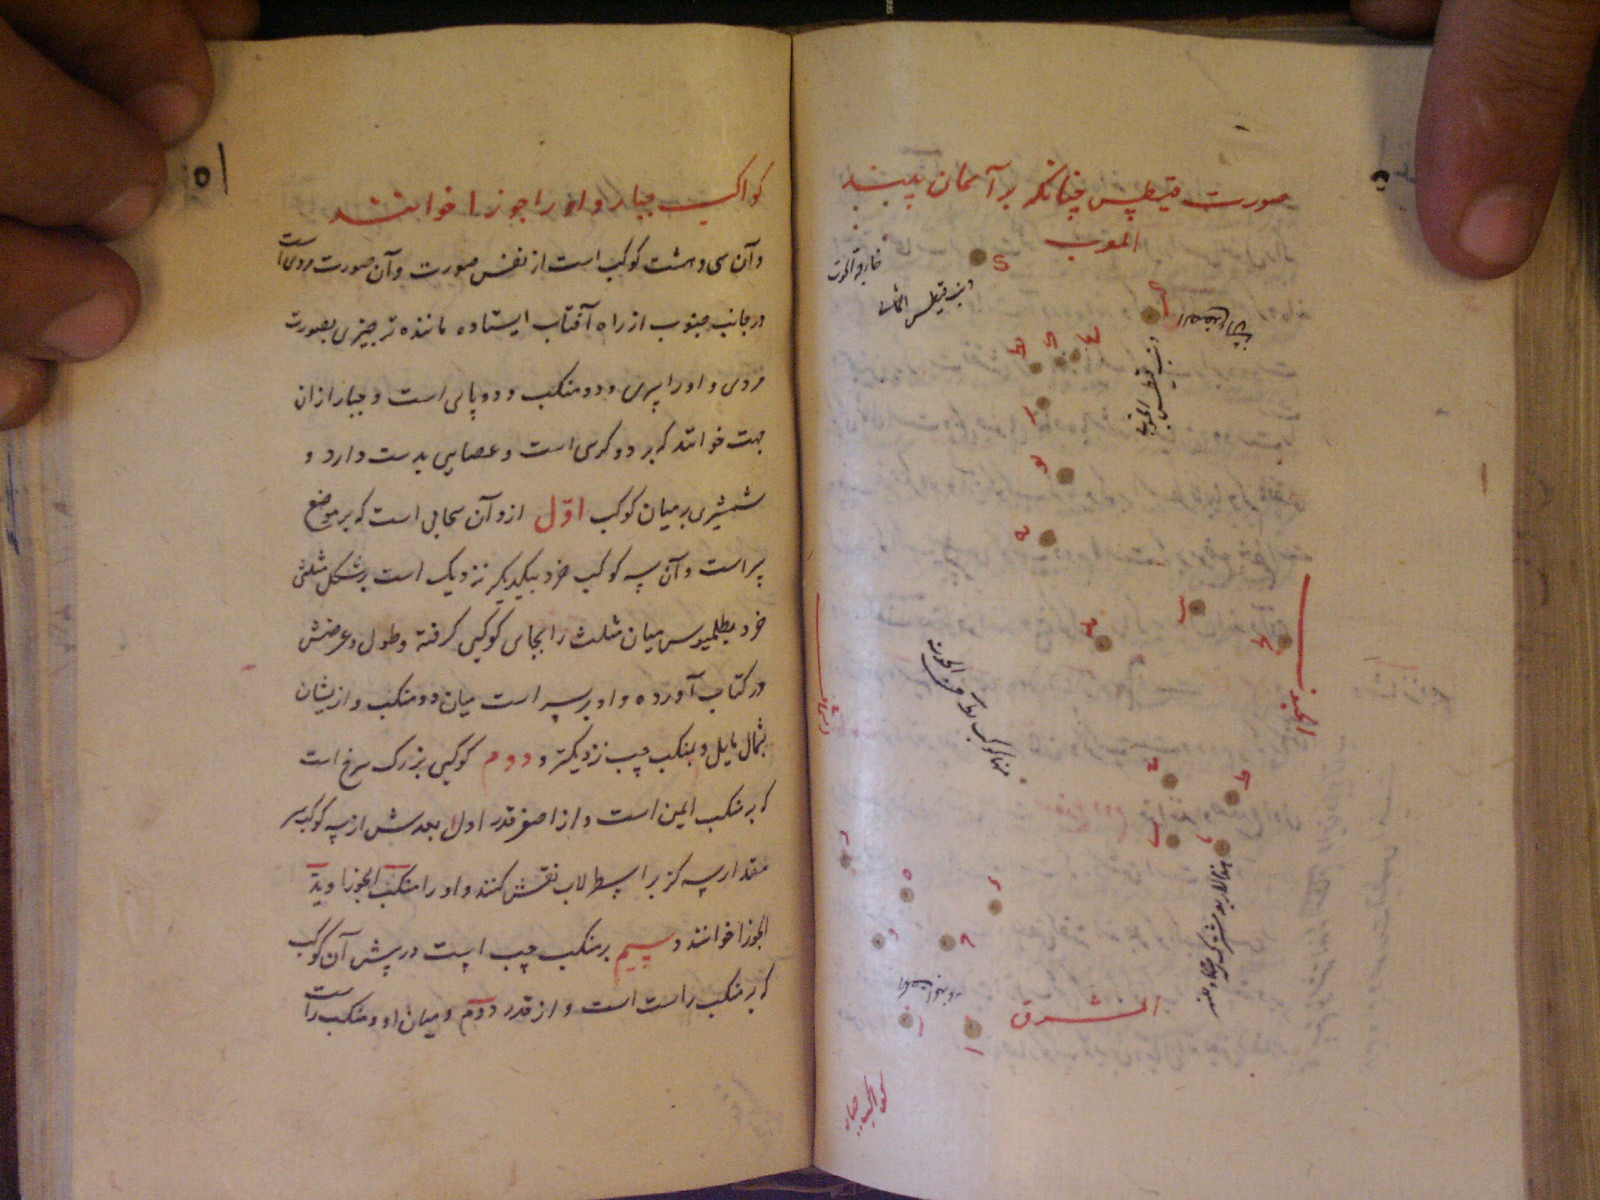 صورت قیطس چنانکه بر آسمان بینند
المغرب
الجنوب
المشرق
کواکب جبار و او را جوزا خوانند
و آن سی و هشت کوکب است از نفس صورت و آن صورت مردی است
در جانب جنوب از راه آفتاب ایستاده ماننده تر چیزی بصورت
مردی و او را سری و دو منکب و دو پای است و جبار ازان
جهت خوانند که بر دو کرسی است و عصایی بدست دارد و
شمشیری بر میان کوکب اول ازو آن سحابی است که بر موضع
سر است و آن سه کوکب خرد بیکدیگر نزدیک است بر شکل مثلثی
خرد بطلمیوس میان مثلث را بجای کوکبی گرفته و طول و عرضش
در کتاب آورده و او بر سر است میان دو منکب و ازیشان
بشمال مایل و بمنکب چپ نزدیکتر و دوم کوکبی بزرگ سرخ است
که بر منکب ایمن است و از اصغر قدر اول بعدش از سه کوکب سر
مقدار سه گز بر اسطرلاب نقش کنند و او را منکب الجوزا و ید
الجوزا خوانند و سیم بر منکب چپ است در پیش آن کوکب
که بر منکب راست است و از قدر دوم و میان او و منکب راست